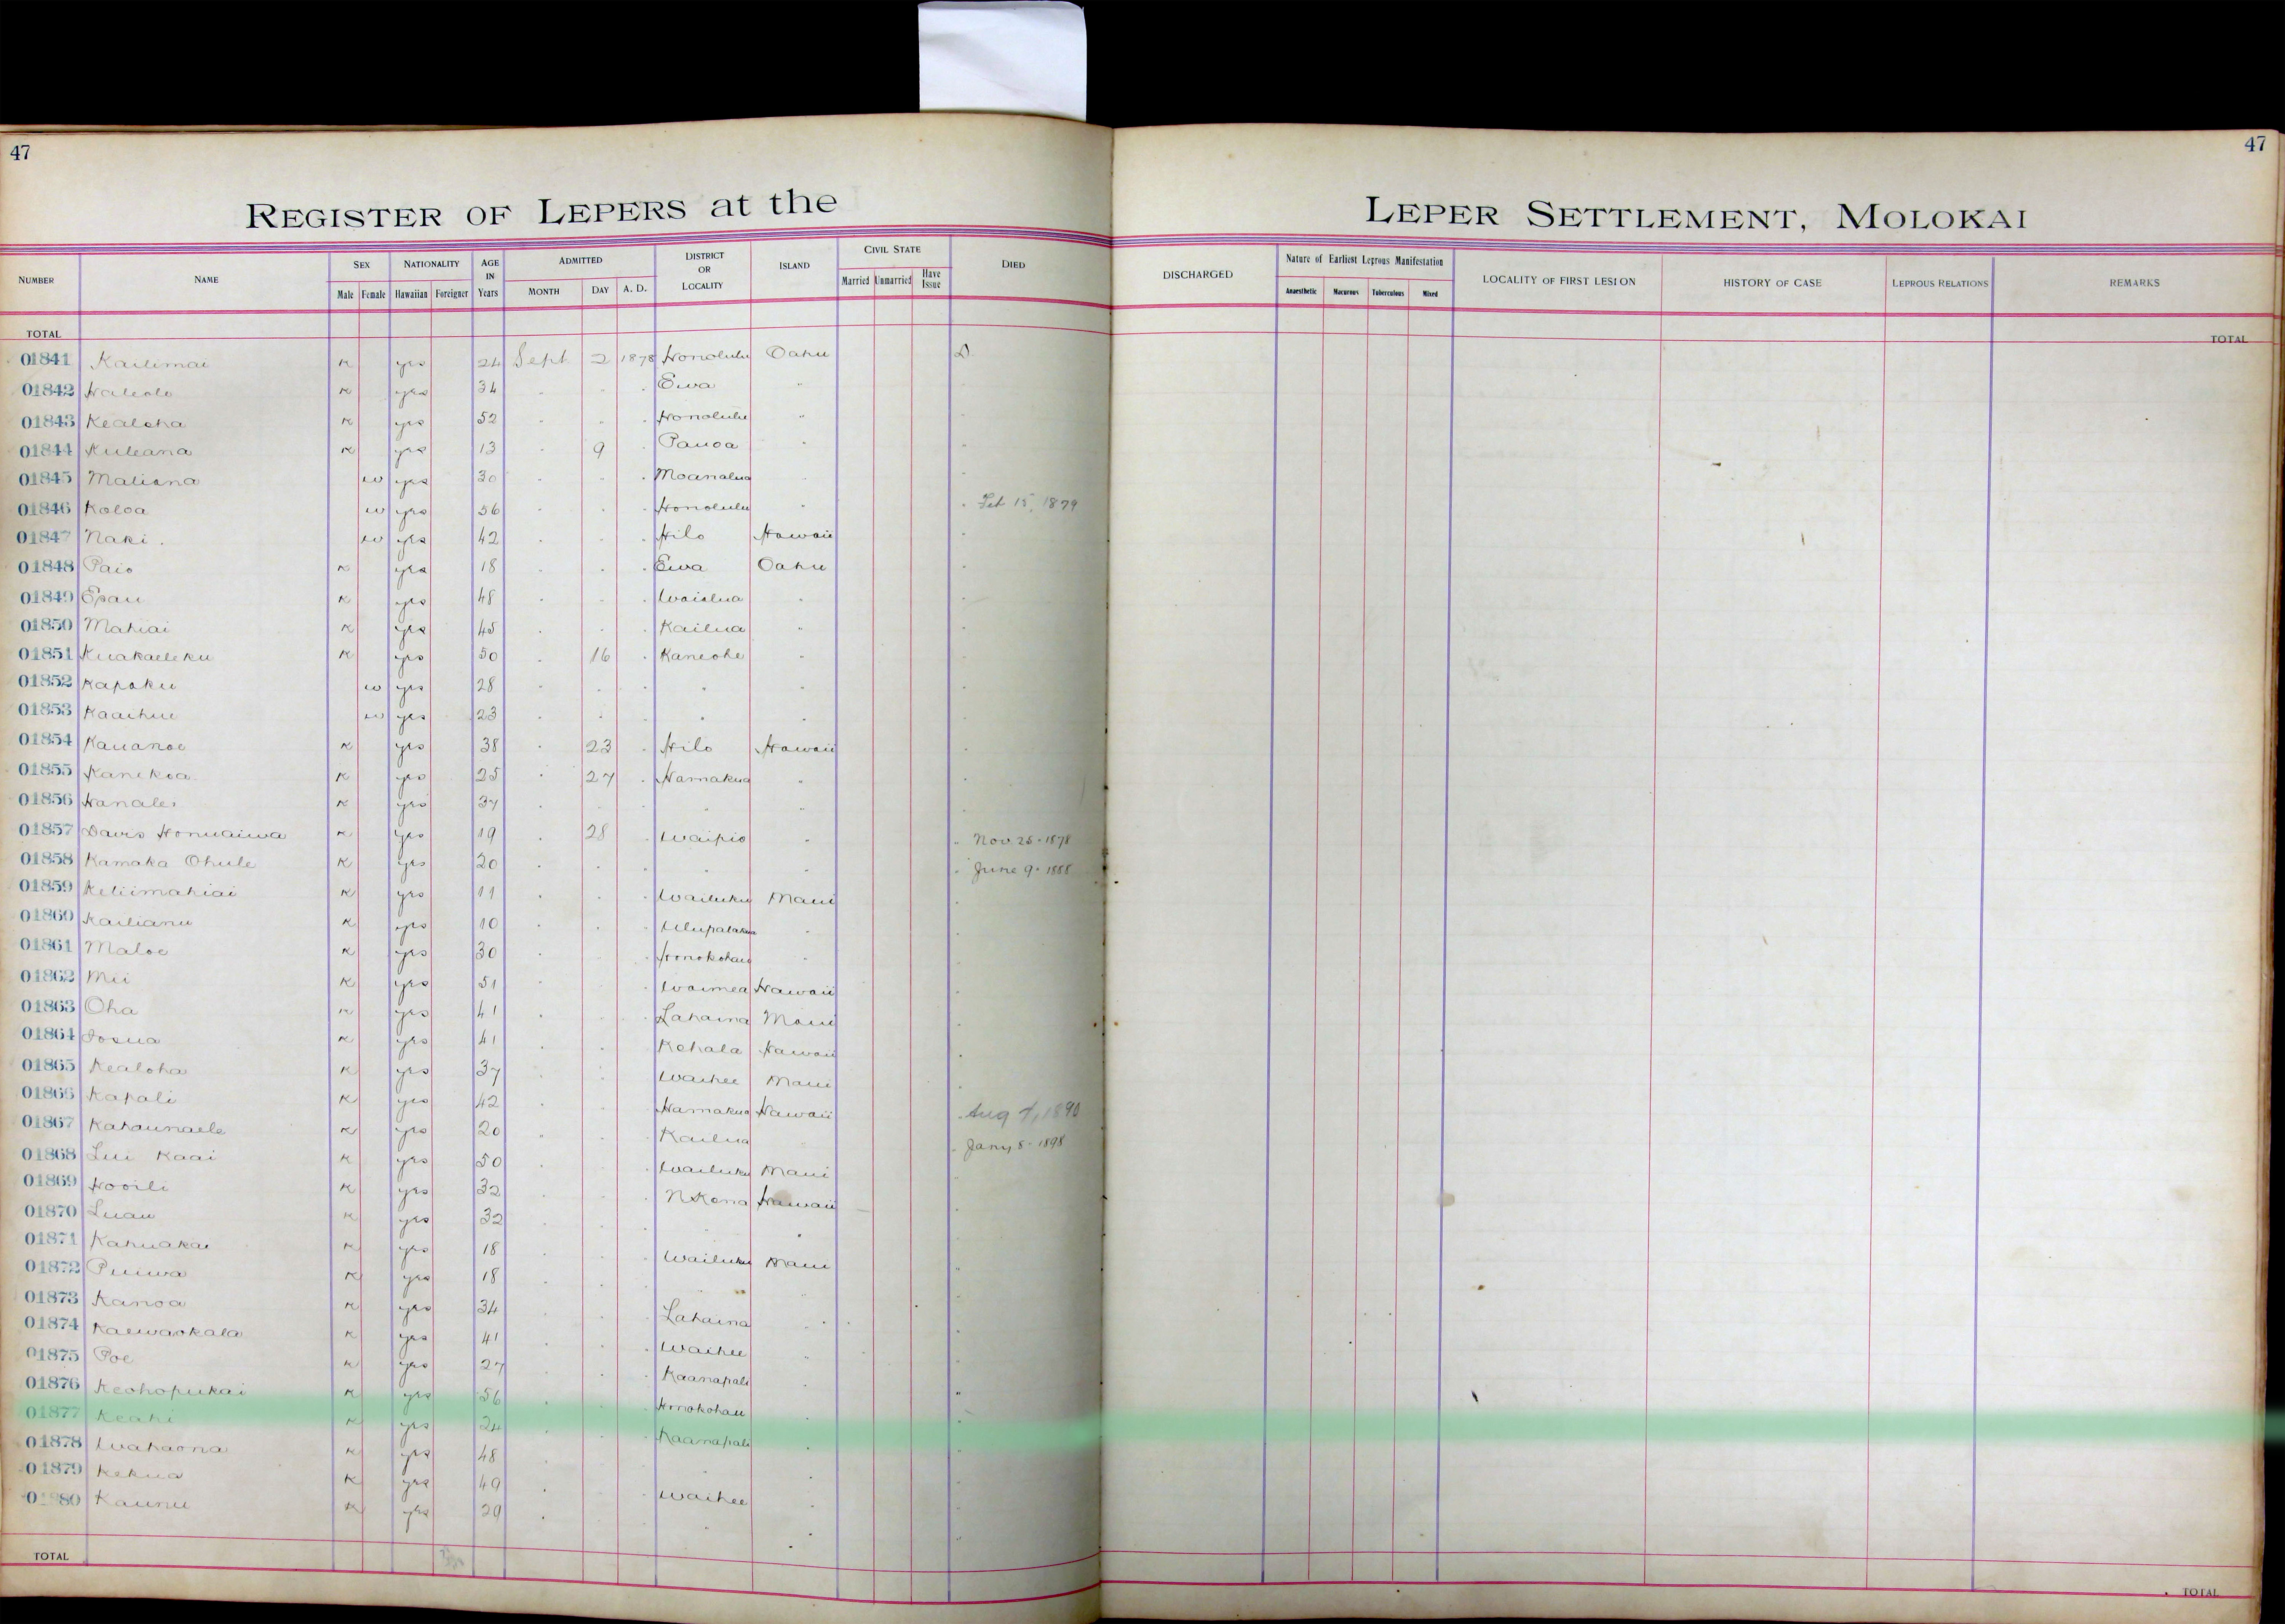 47
47
REGISTER OF LEPERS at the LEPER SETTLEMENT, MOLOKAI
NUMBER NAME SEX NATIONALITY AGE IN Years ADMITTED DISTRICT OR LOCALITY ISLAND CIVIL STATE DIED DISCHARGED Nature of Earliest Leprous Manifestation LOCALITY OF FIRST LESION HISTORY OF CASE LEPROUS RELATIONS REMARKS
Male Female Hawaiian Foreigner MONTH DAY A. D. Married Unmarried Have Issue Anaesthetic Macurous Tuberculous Mixed
TOTAL TOTAL
01841 Kailimai K yes 24 Sept 2 1878 Honolulu Oahu D
01842 Haleolo K yes 34 " " " Ewa "
01843 Kealoha K yes 52 " " " Honolulu "
01844 Kuleana K yes 13 " 9 " Pauoa "
01845 Maliana w yes 30 " " " Moanalua "
01846 Koloa w yes 56 " " " Honolulu " " Feb 15, 1879
01847 Naki w yes 42 " " " Hilo Hawaii "
01848 Paio K yes 18 " " " Ewa Oahu "
01849 Epau K yes 48 " " " Waialua " "
01850 Mahiai K yes 45 " " " Kailua " "
01851 Kuakaeleku K yes 50 " 16 " Kaneohe " "
01852 Kapoku w yes 28 " " " " "
01853 Kaaihue w yes 23 " " " " "
01854 Kauanoe K yes 38 " 23 " Hilo Hawaii "
01855 Kanekoa K yes 25 " 27 " Hamakua " "
01856 Hanalei K yes 37 " " " " " "
01857 Davis Honuaiwa K yes 19 " 28 " Waipio " " Nov 25 - 1878
01858 Kamaka Ohule K yes 20 " " " " " June 9 - 1888
01859 Keliimahiai K yes 11 " " " Wailuku Maui "
01860 Kailianu K yes 10 " " " Ulupalakua " "
01861 Maloe K yes 30 " " " Honokohau " "
01862 Mii K yes 51 " " Waimea Hawaii "
01863 Oha K yes 41 " " Lahaina Maui "
01864 Iosua K yes 41 " " Kohala Hawaii "
01865 Kealoha K yes 37 " " Waihee Maui "
01866 Kapali K yes 42 " " Hamakua Hawaii " Aug 7, 1890
01867 Kahaunaele K yes 20 " " " Kailua " Jany 8 - 1898
01868 Lui Kaai K yes 50 " " Wailuku Maui "
01869 Hooili K yes 32 " " N Kona Hawaii "
01870 Luau K yes 32 " " " " "
01871 Kahuakai K yes 18 " " " Wailuku Maui "
01872 Puiwa K yes 18 " " " "
01873 Kanoa K yes 34 " " " Lahaina " "
01874 Kaewaokala K yes 41 " " " Waihee " "
01875 Poe K yes 27 " " " Kaanapali " "
01876 Keohopukai K yes 56 " " Honokohau " "
01877 Keahi K yes 24 " " " Kaanapali " "
01878 Wahaona K yes 48 " " "
01879 Kekua K yes 49 " " Waihee "
01880 Kaunu K yes 29 " " " "
TOTAL TOTAL